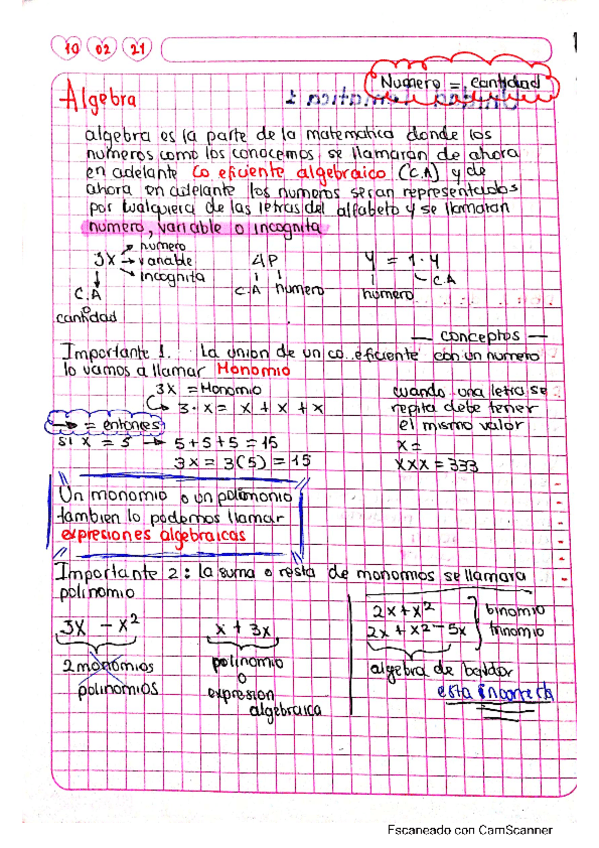 10 02 21
Numero = cantidad
Algebra
algebra es la parte de la matematica donde los
numeros como los conocemos se llamaran de ahora
en adelante Co eficiente algebraico (C.A) y de
ahora en adelante los numeros seran representados
por cualquiera de las letras del alfabeto y se llamaran
numero, variable o incognita
3X → numero
→ variable
→ incognita
C.A
cantidad
4P
C.A numero
y = 1·y
numero
C.A
— conceptos —
Importante 1. La union de un co. eficiente con un numero
lo vamos a llamar Monomio
3X = Monomio
3·x = x + x + x
→ = entonces
si x = 5 → 5+5+5 = 15
3x = 3(5) = 15
cuando una letra se
repita debe tener
el mismo valor
x =
xxx = 333
Un monomio o un polimonio
tambien lo podemos llamar
expresiones algebraicas
Importante 2: la suma o resta de monomios se llamara
polinomio
3x - x²
2 monomios
polinomios
x + 3x
polinomio
o
expresion
algebraica
2x+x² binomio
2x + x² - 5x trinomio
algebra de baldor
esta incorrecta
Escaneado con CamScanner